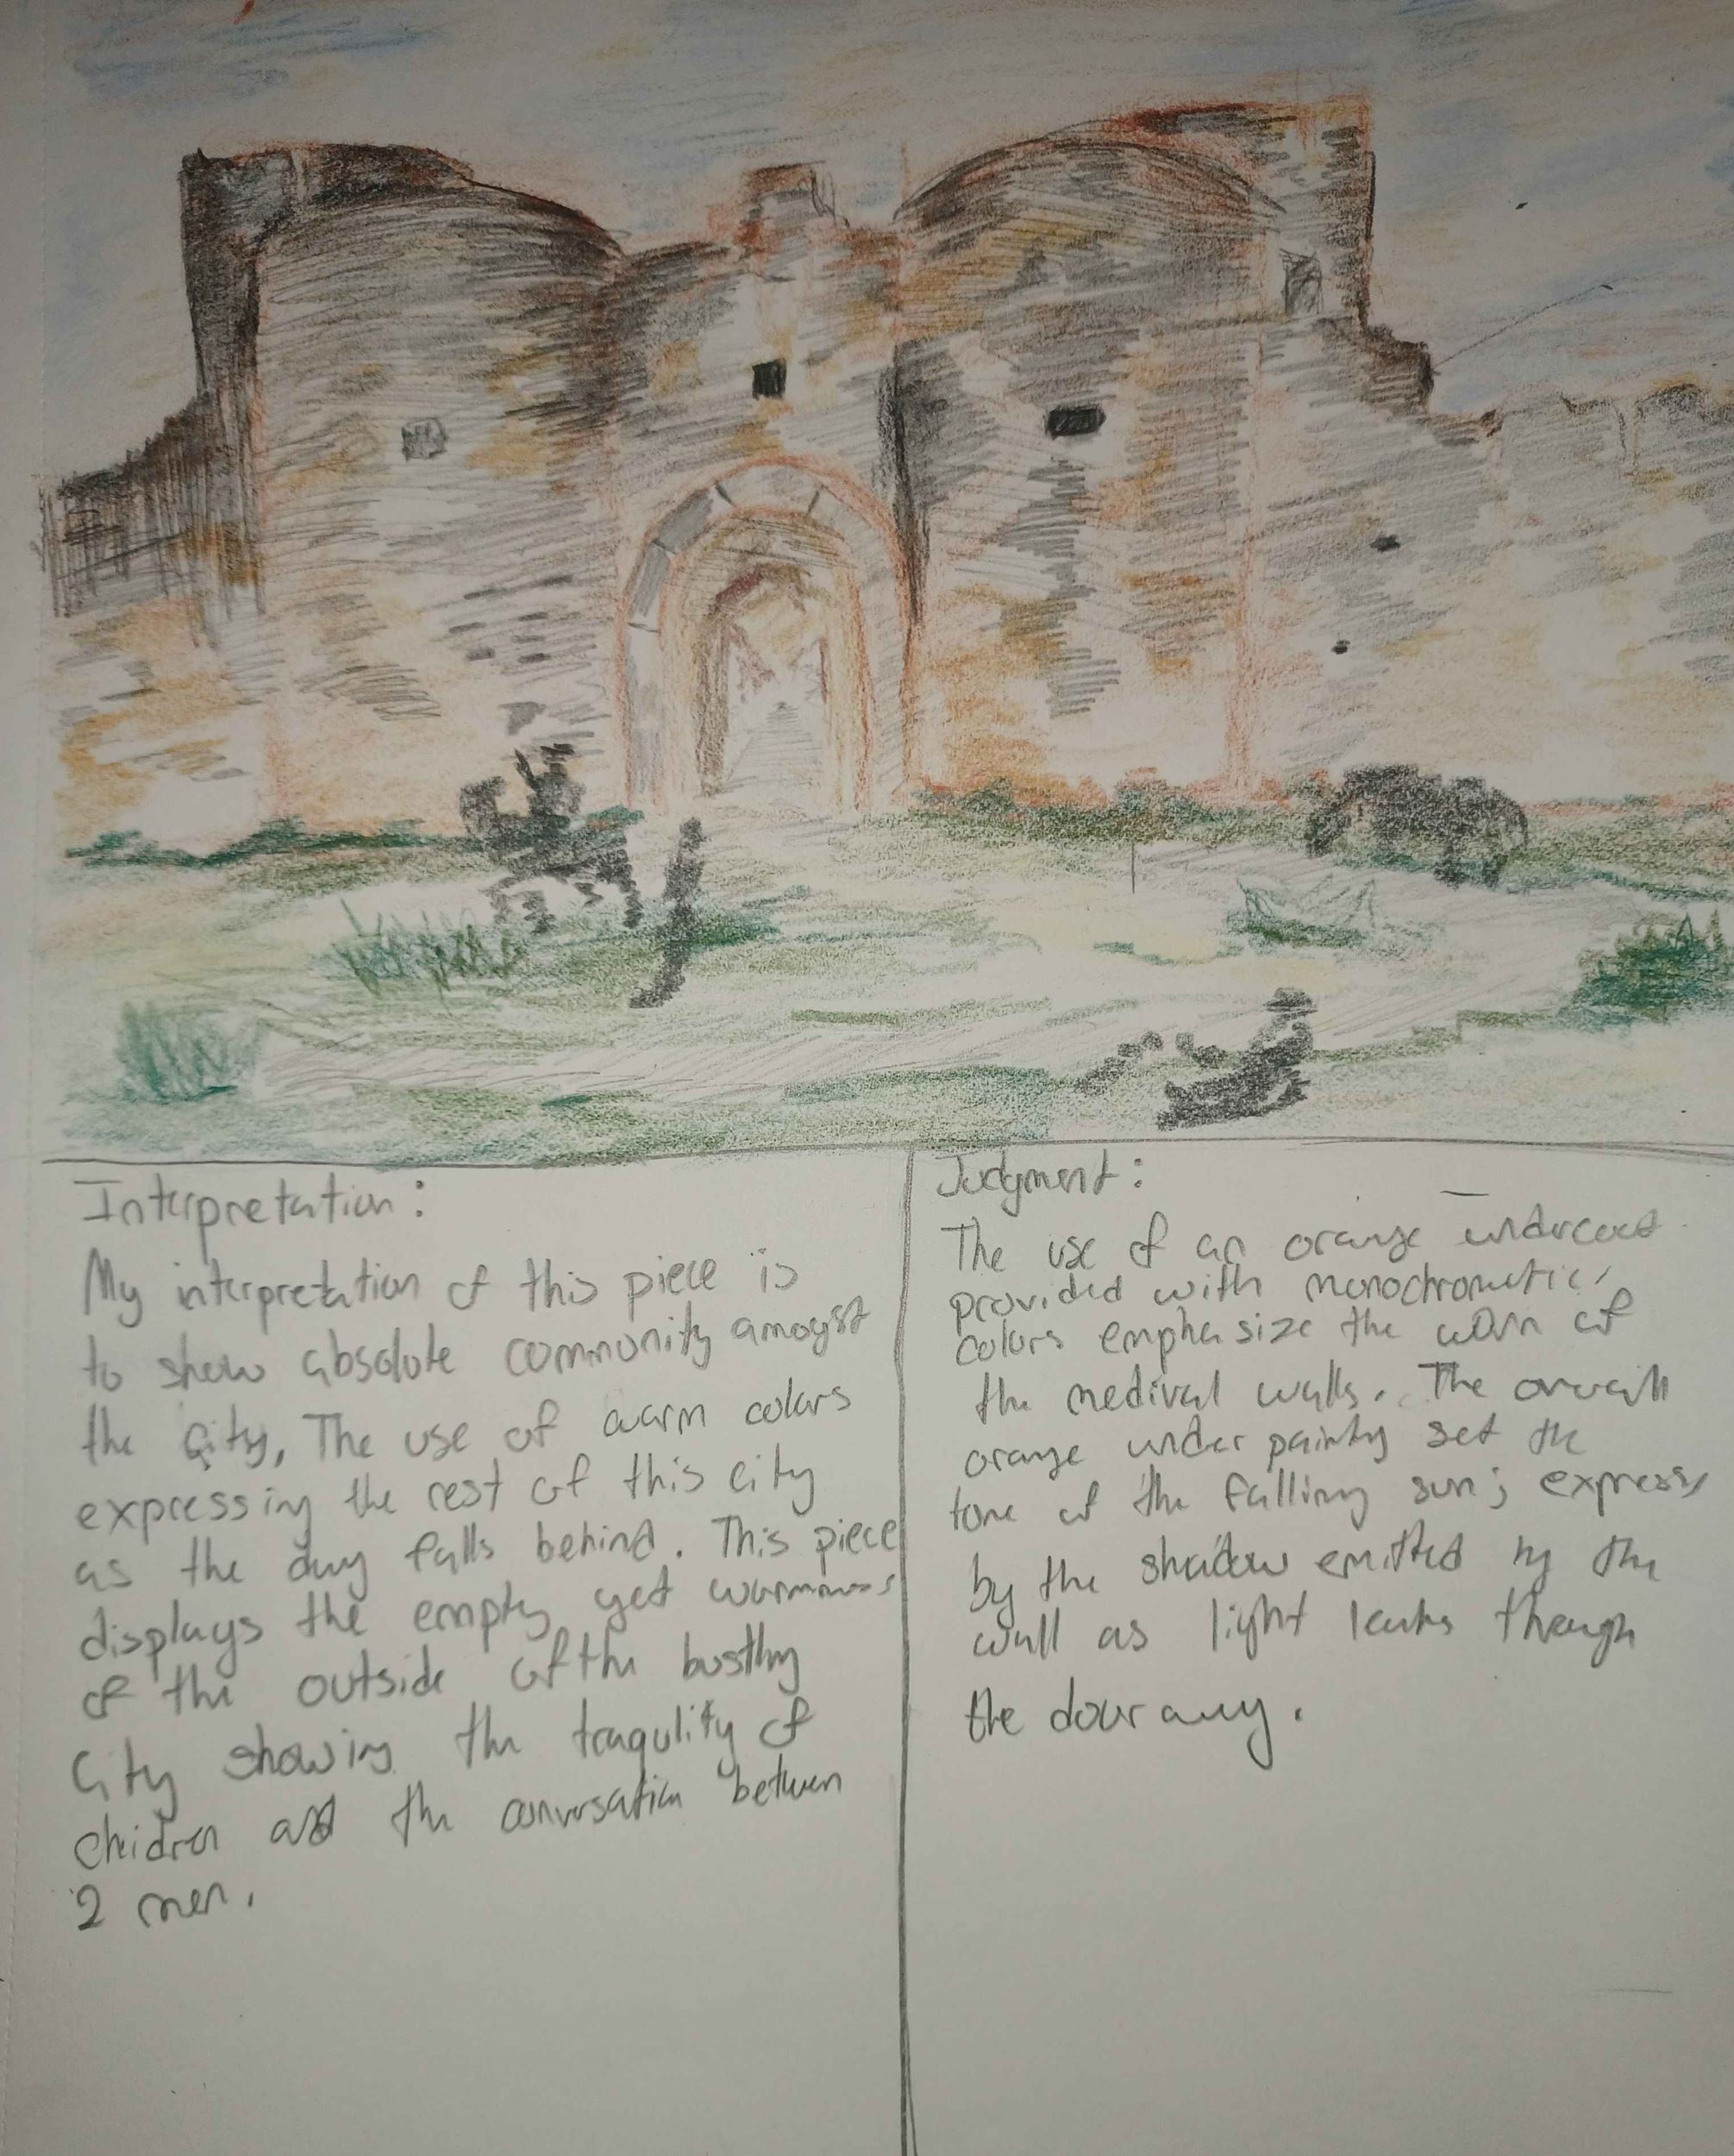 Interpretation:
My interpretation of this piece is
to show absolute community amogst
the city, The use of warm colors
expressing the rest of this city
as the day falls behind. This piece
displays the empty yet
of the outside of the bustling
City showing the tranqulity of
and the conversation between
2 men.
Judgment:
The use of an orange undercoat
provided with monochrometic
colors emphasize the worn of
the medival walls. The overall
orange under painty set the
tone of the falling sun; express
by the shadow emitted by the
wall as light leaks though
the door away.